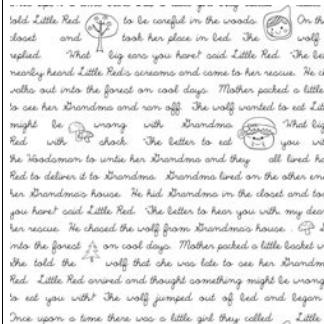 told Little Red to be careful in the woods. On th
closet and took her place in bed. The wolf
replied. What big ears you have! said Little Red. The be
nearby heard Little Red's screams and came to her rescue. He c
walks out into the forest on cool days. Mother packed a little
to see her Grandma and ran off. The wolf wanted to eat Lit
might be wrong with Grandma. What big
Red with shock. The better to eat you wit
the Woodsman to untie her Grandma and they all lived ha
Red to deliver it to Grandma. Grandma lived on the other en
her Grandma's house. He hid Grandma in the closet and too
you have! said Little Red. The better to hear you with my dear
her rescue. He chased the wolf from Grandma's house.
into the forest on cool days. Mother packed a little basket w
She told the wolf that she was late to see her Grandm
Red. Little Red arrived and thought something might be wrong
to eat you with! The wolf jumped out of bed and began
Once upon a time there was a little girl they called Little